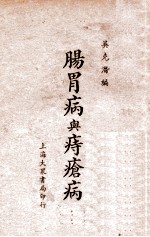 吳克潛編
腸胃病與痔瘡病
上海大眾書局印行